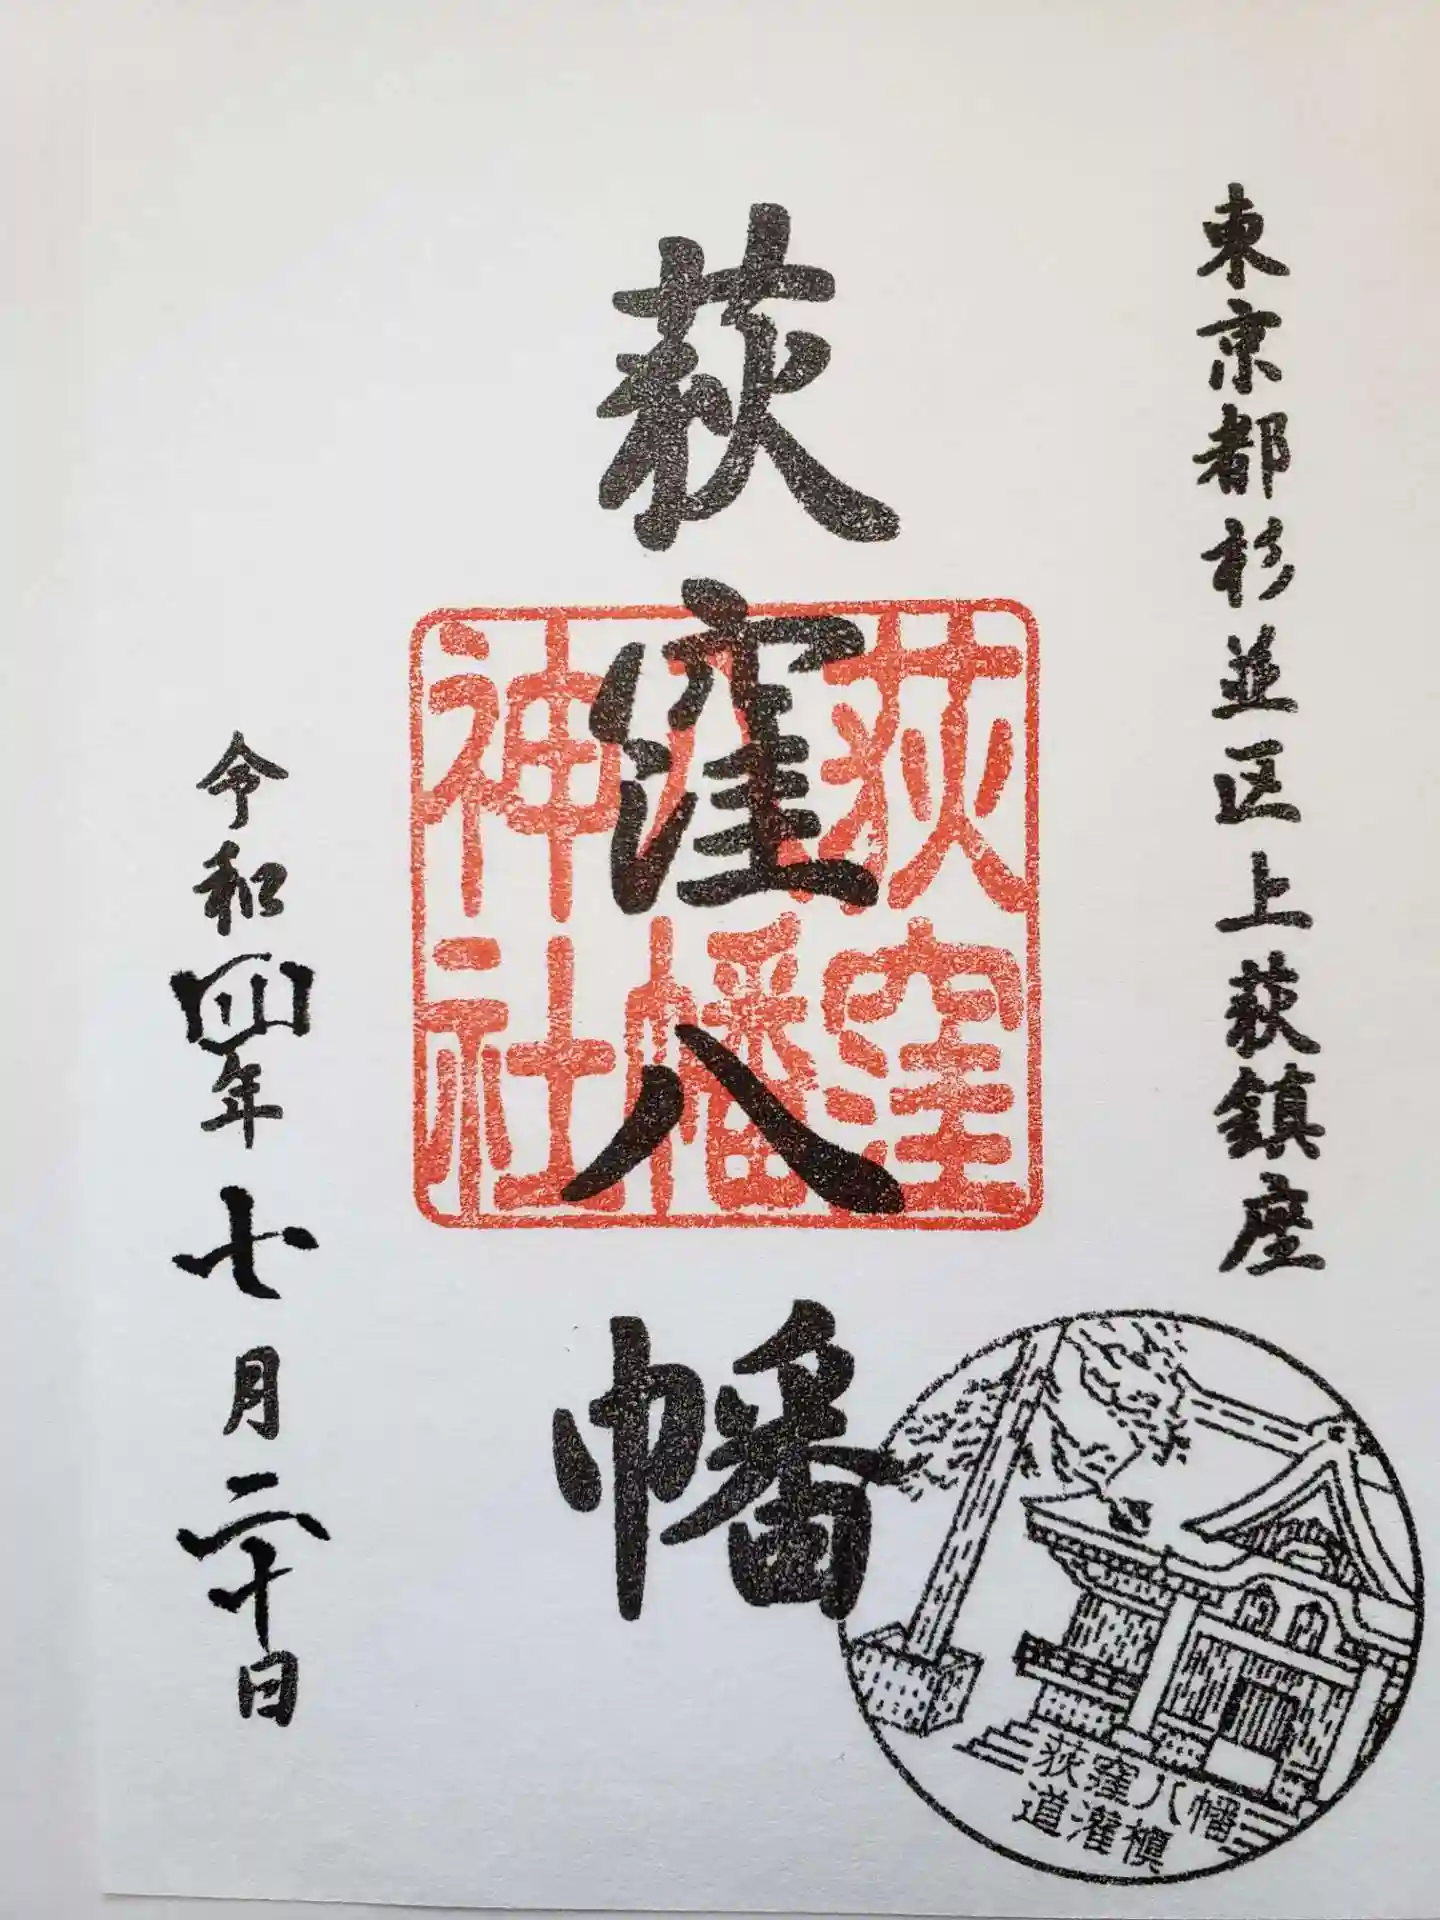 東京都杉並区上荻鎮座
荻窪八幡
荻窪
八幡
神社
令和四年七月二十日
荻窪八幡
道灌槙